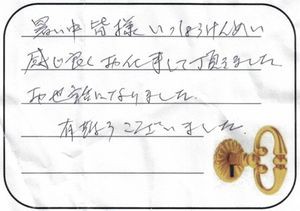 暑い中 皆様 いっしょうけんめい
感じ良く お仕事して頂きました
お世話になりました。
有難うございました。